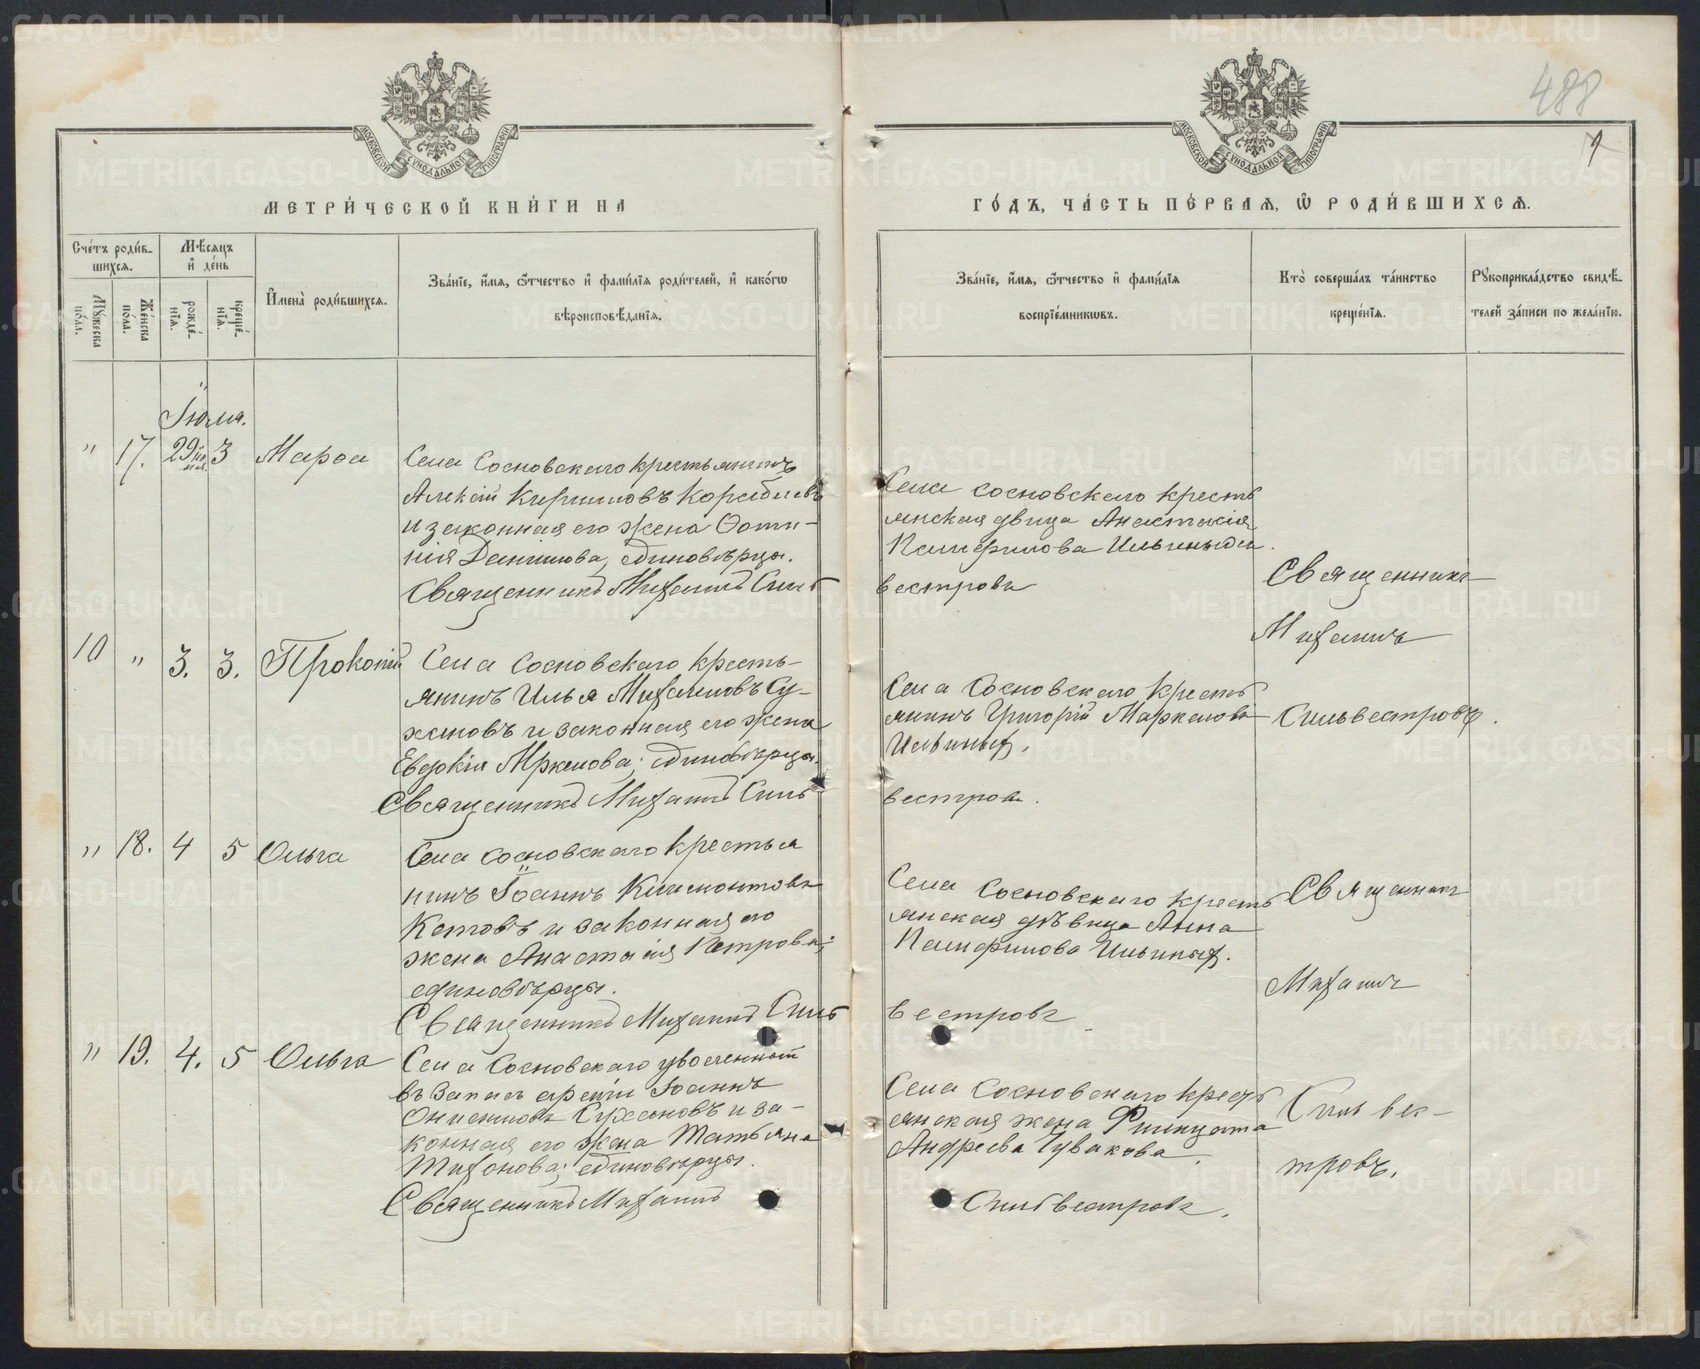 488
1
МОСКОВСКОЙ СѴНОДАЛЬНОЙ ТИПОГРАФІИ
МОСКОВСКОЙ СѴНОДАЛЬНОЙ ТИПОГРАФІИ
МЕТРИ́ЧЕСКОЙ КНИ́ГИ НА
ГО́ДЪ, ЧА́СТЬ ПЕ́РВАѦ, Ѡ РОДИ́ВШИХСѦ.
Сче́тъ роди́в-
шихсѧ.
Мѣ́сѧцъ
и҆ де́нь
Мꙋ́жеска
по́ла.
Же́нска
по́ла.
рожде́-
нїѧ.
креще́-
нїѧ.
И҆мена̀ роди́вшихсѧ.
Зва́нїе, и҆́мѧ, ѻ҆́тчество и҆ фами́лїѧ роди́телей, и҆ како́гѡ
вѣроисповѣ́данїѧ.
Зва́нїе, и҆́мѧ, ѻ҆́тчество и҆ фами́лїѧ
воспрїе́мникѡвъ.
Кто̀ соверша́лъ та́инство
креще́нїѧ.
Рꙋкоприкла́дство свидѣ́-
телей за́писи по жела́нїю.
Іюля.
" 17. 29 3 Марѳа
Села Сосновскаго крестьянинъ
Алексій Кириловъ
и законная его жена Ѳоти-
нія Данилова, единовѣрцы.
Священникъ Михаилъ Силь
Села Сосновскаго кресть
янская двица Анастасія
Памфилова Ильиныхъ.
вестровъ
Священникъ
Михаилъ
Сильвестровъ.
10 " 3. 3. Прокопій
Села Сосновскаго кресть-
янинъ Илья Михаиловъ Су-
хановъ и законная его жена
Евдокія Мркелова; единовѣрцы.
Священникъ Михаилъ Силь
Села Сосновскаго кресть
янинъ Григорій Маркеловъ
Ильиныхъ.
вестровъ.
" 18. 4 5 Ольга
Села Сосновскаго крестья
нинъ Іоаннъ Климонтовъ
Котовъ и законная его
жена Анастасія Петрова;
единовѣрцы.
Священникъ Михаилъ Силь
Села Сосновскаго кресть
янская дѣвица Анна
Памфилова Ильиныхъ.
вестровъ
Священникъ
Михаилъ
Сильвес-
тровъ.
" 19. 4. 5 Ольга
Села Сосновскаго уволенный
въ запасъ арміи Іоаннъ
Сухановъ и за-
конная его жена Татьяна
Тихонова; единовѣрцы.
Священникъ Михаилъ
Села Сосновскаго кресть
янская жена
Андреева Чувакова.
Сильвестровъ.
METRIKI.GASO-URAL.RU